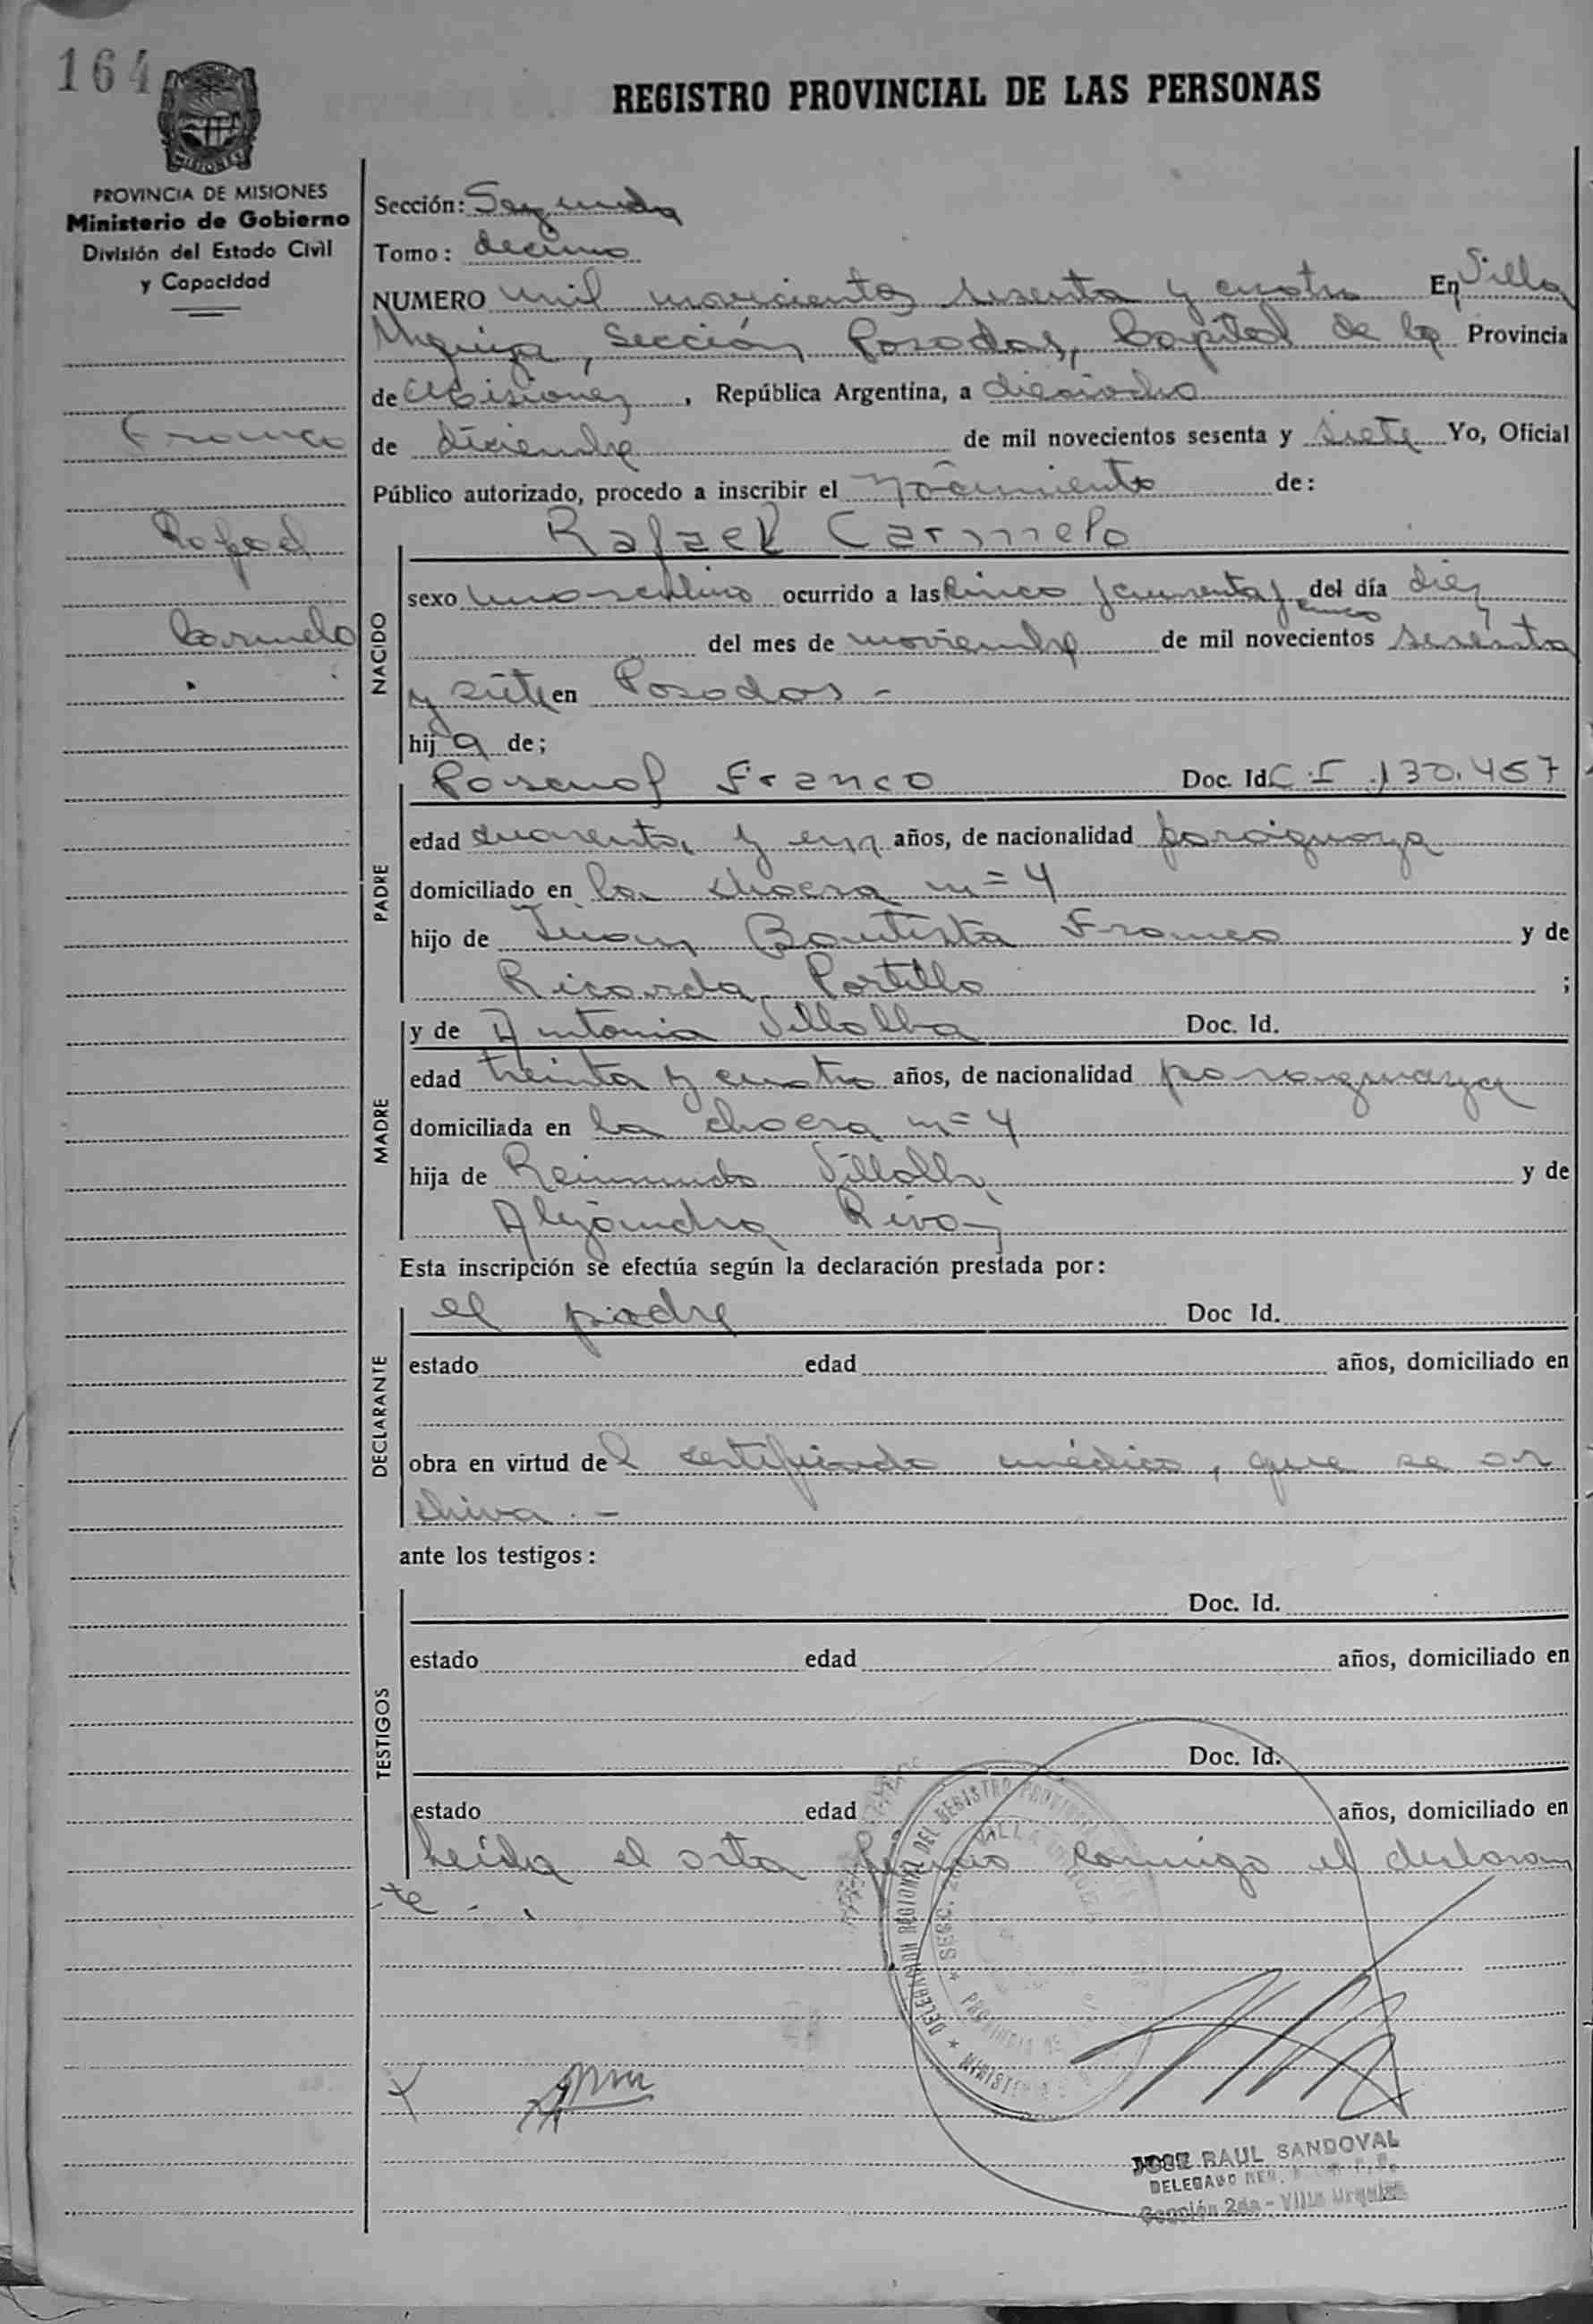 164
REGISTRO PROVINCIAL DE LAS PERSONAS
MISIONES
PROVINCIA DE MISIONES
Ministerio de Gobierno
División del Estado Civil
y Capacidad
Franco
Rafael
Carmelo
Sección: Segunda
Tomo: decimo
NUMERO mil novecientos sesenta y cuatro En Villa
Urquiza, Sección Posadas, Capital de la Provincia
de Misiones, República Argentina, a dieciocho
de diciembre de mil novecientos sesenta y siete Yo, Oficial
Público autorizado, procedo a inscribir el nacimiento de:
Rafael Carmelo
NACIDO
sexo masculino ocurrido a las cinco y cuarenta y cinco del día diez
del mes de noviembre de mil novecientos sesenta
y siete en Posadas -
hij de;
PADRE
Franco Doc. Id. C.I. 130.457
edad cuarenta y años, de nacionalidad paraguaya
domiciliado en la chacra n= 4
hijo de Juan Bautista Franco y de
Ricarda Portillo ;
MADRE
y de Antonia Villalba Doc. Id.
edad treinta y cuatro años, de nacionalidad paraguaya
domiciliada en la chacra n= 4
hija de Reimundo Villalba y de
Alejandra
Esta inscripción se efectúa según la declaración prestada por:
DECLARANTE
el padre Doc Id.
estado edad años, domiciliado en
obra en virtud del certificado médico, que se ar
chiva. -
ante los testigos:
TESTIGOS
Doc. Id.
estado edad años, domiciliado en
Doc. Id.
estado edad años, domiciliado en
Leída el acta firmó conmigo el declaran
te - .
DELEGACION REGIONAL DEL REGISTRO PROVINCIAL
JOSE RAUL SANDOVAL
DELEGADO REG.
Sección 2da - Villa Urquiza